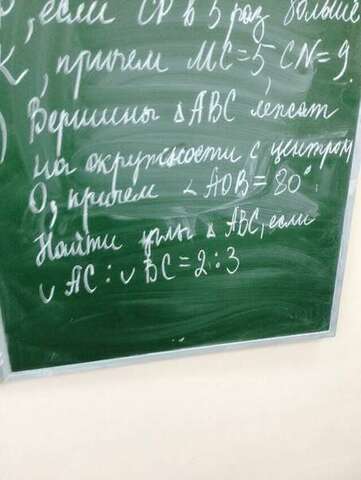 , если CP в 5 раз больше
K, причем MC=5, CN=9
Вершины △ABC лежат
на окружности с центром
O, причем ∠AOB=80°.
Найти углы △ABC, если
◡AC:◡BC=2:3